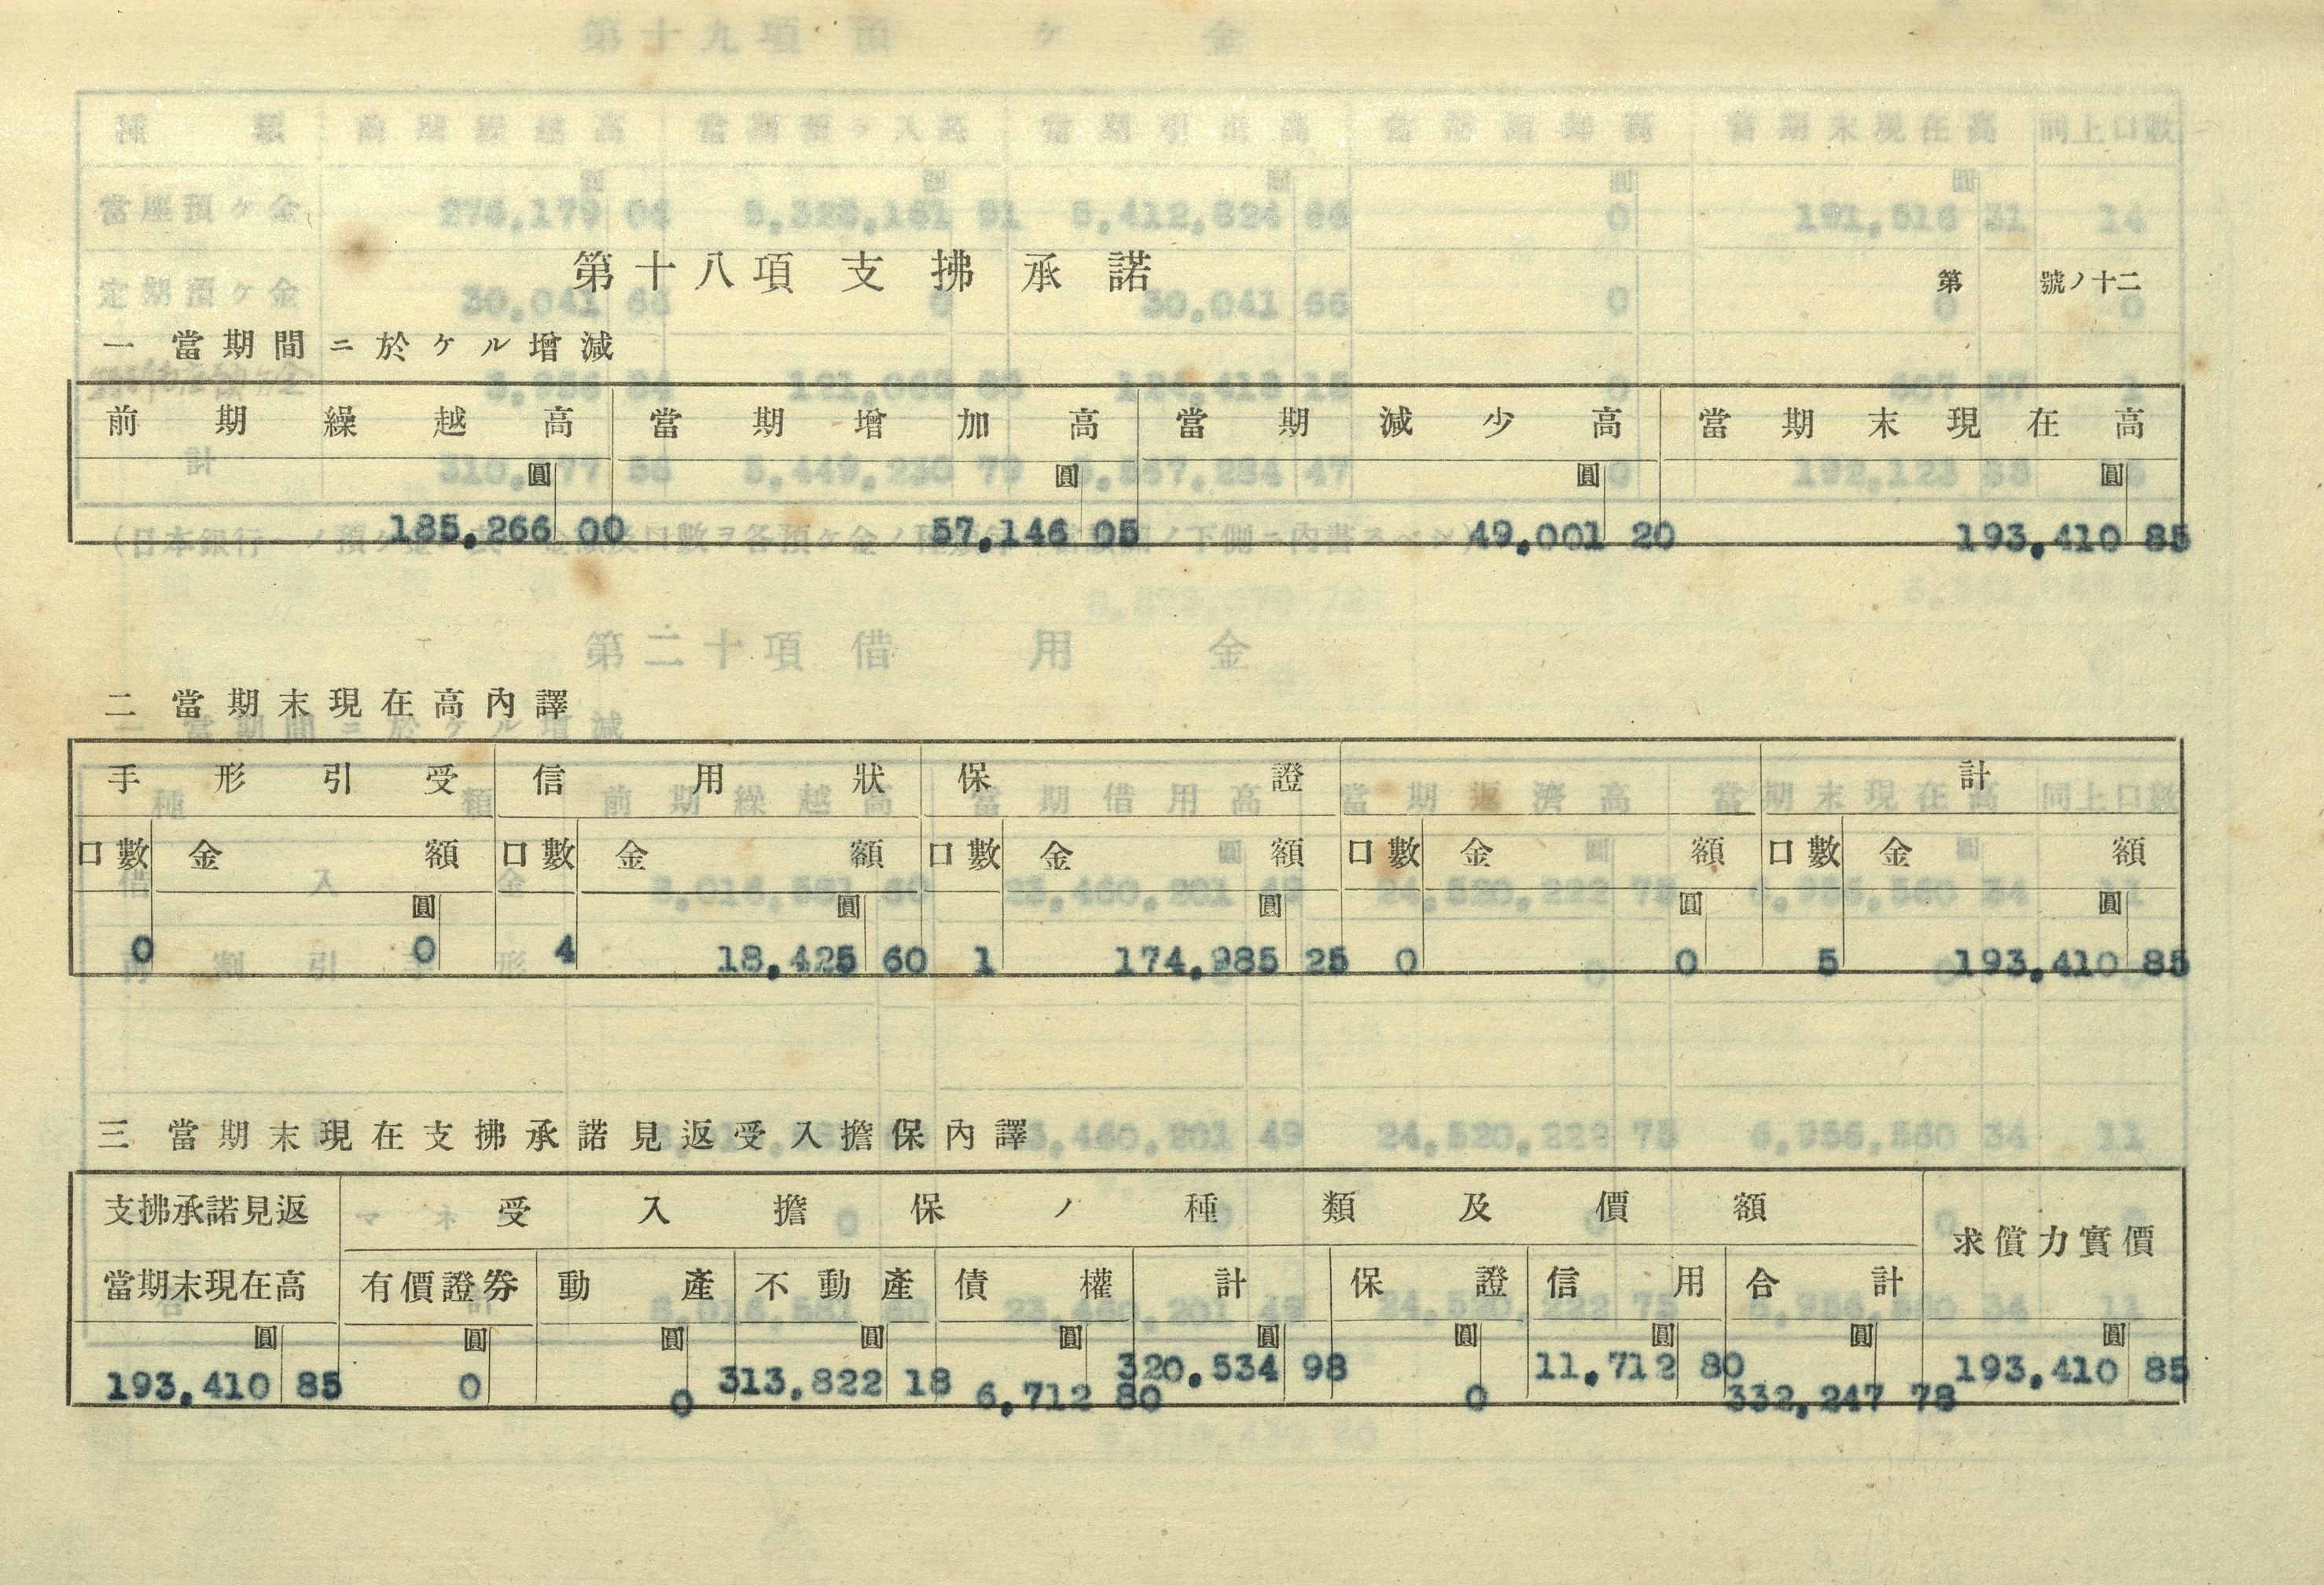 第十八項 支拂承諾
第 號ノ十二
一 當期間ニ於ケル增減
前期繰越高 當期增加高 當期減少高 當期末現在高
圓 圓 圓 圓
185,266 00 57,146 05 49,001 20 193,410 85
二 當期末現在高內譯
手形引受 信用狀 保證 計
口數 金額 口數 金額 口數 金額 口數 金額 口數 金額
圓 圓 圓 圓 圓
0 0 4 18,425 60 1 174,985 25 0 0 5 193,410 85
三 當期末現在支拂承諾見返受入擔保內譯
支拂承諾見返 受入擔保ノ種類及價額 求償力實價
當期末現在高 有價證券 動產 不動產 債權 計 保證 信用 合計
圓 圓 圓 圓 圓 圓 圓 圓 圓 圓
193,410 85 0 0 313,822 18 6,712 80 320.534 98 0 11,712 80 332,247 78 193,410 85